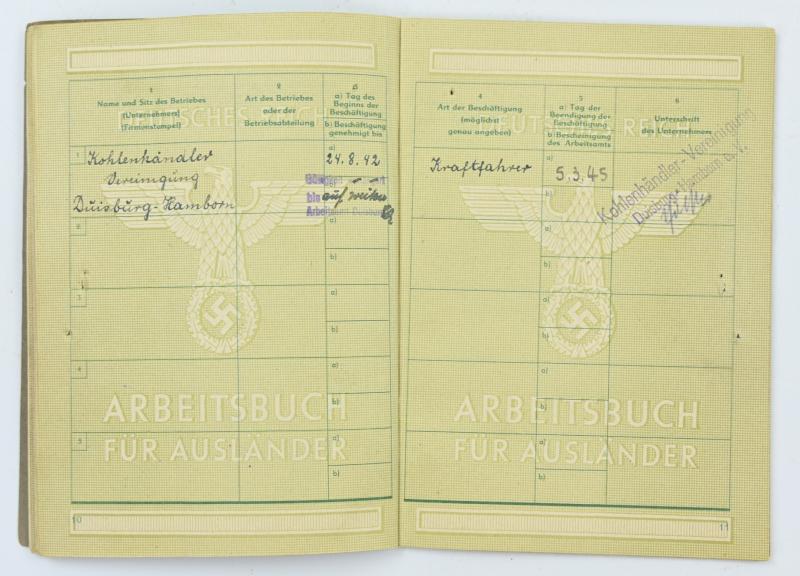 1
Name und Sitz des Betriebes
(Unternehmers)
(Firmenstempel)
2
Art des Betriebes
oder der
Betriebsabteilung
3
a) Tag des
Beginns der
Beschäftigung
b) Beschäftigung
genehmigt bis
DEUTSCHES REICH
1
Kohlenhändler
Vereinigung
Duisburg-Hamborn
a)
24.8.42
bis auf weiteres
Arbeitsamt Duisburg
2
a)
b)
3
a)
b)
4
a)
b)
5
a)
b)
ARBEITSBUCH
FÜR AUSLÄNDER
10
4
Art der Beschäftigung
(möglichst
genau angeben)
5
a) Tag der
Beendigung der
Beschäftigung
b) Bescheinigung
des Arbeitsamts
6
Unterschrift
des Unternehmers
DEUTSCHES REICH
Kraftfahrer
a)
5.3.45
b)
Kohlenhändler-Vereinigung
Duisburg-Hamborn e. V.
a)
b)
a)
b)
a)
b)
a)
b)
ARBEITSBUCH
FÜR AUSLÄNDER
11